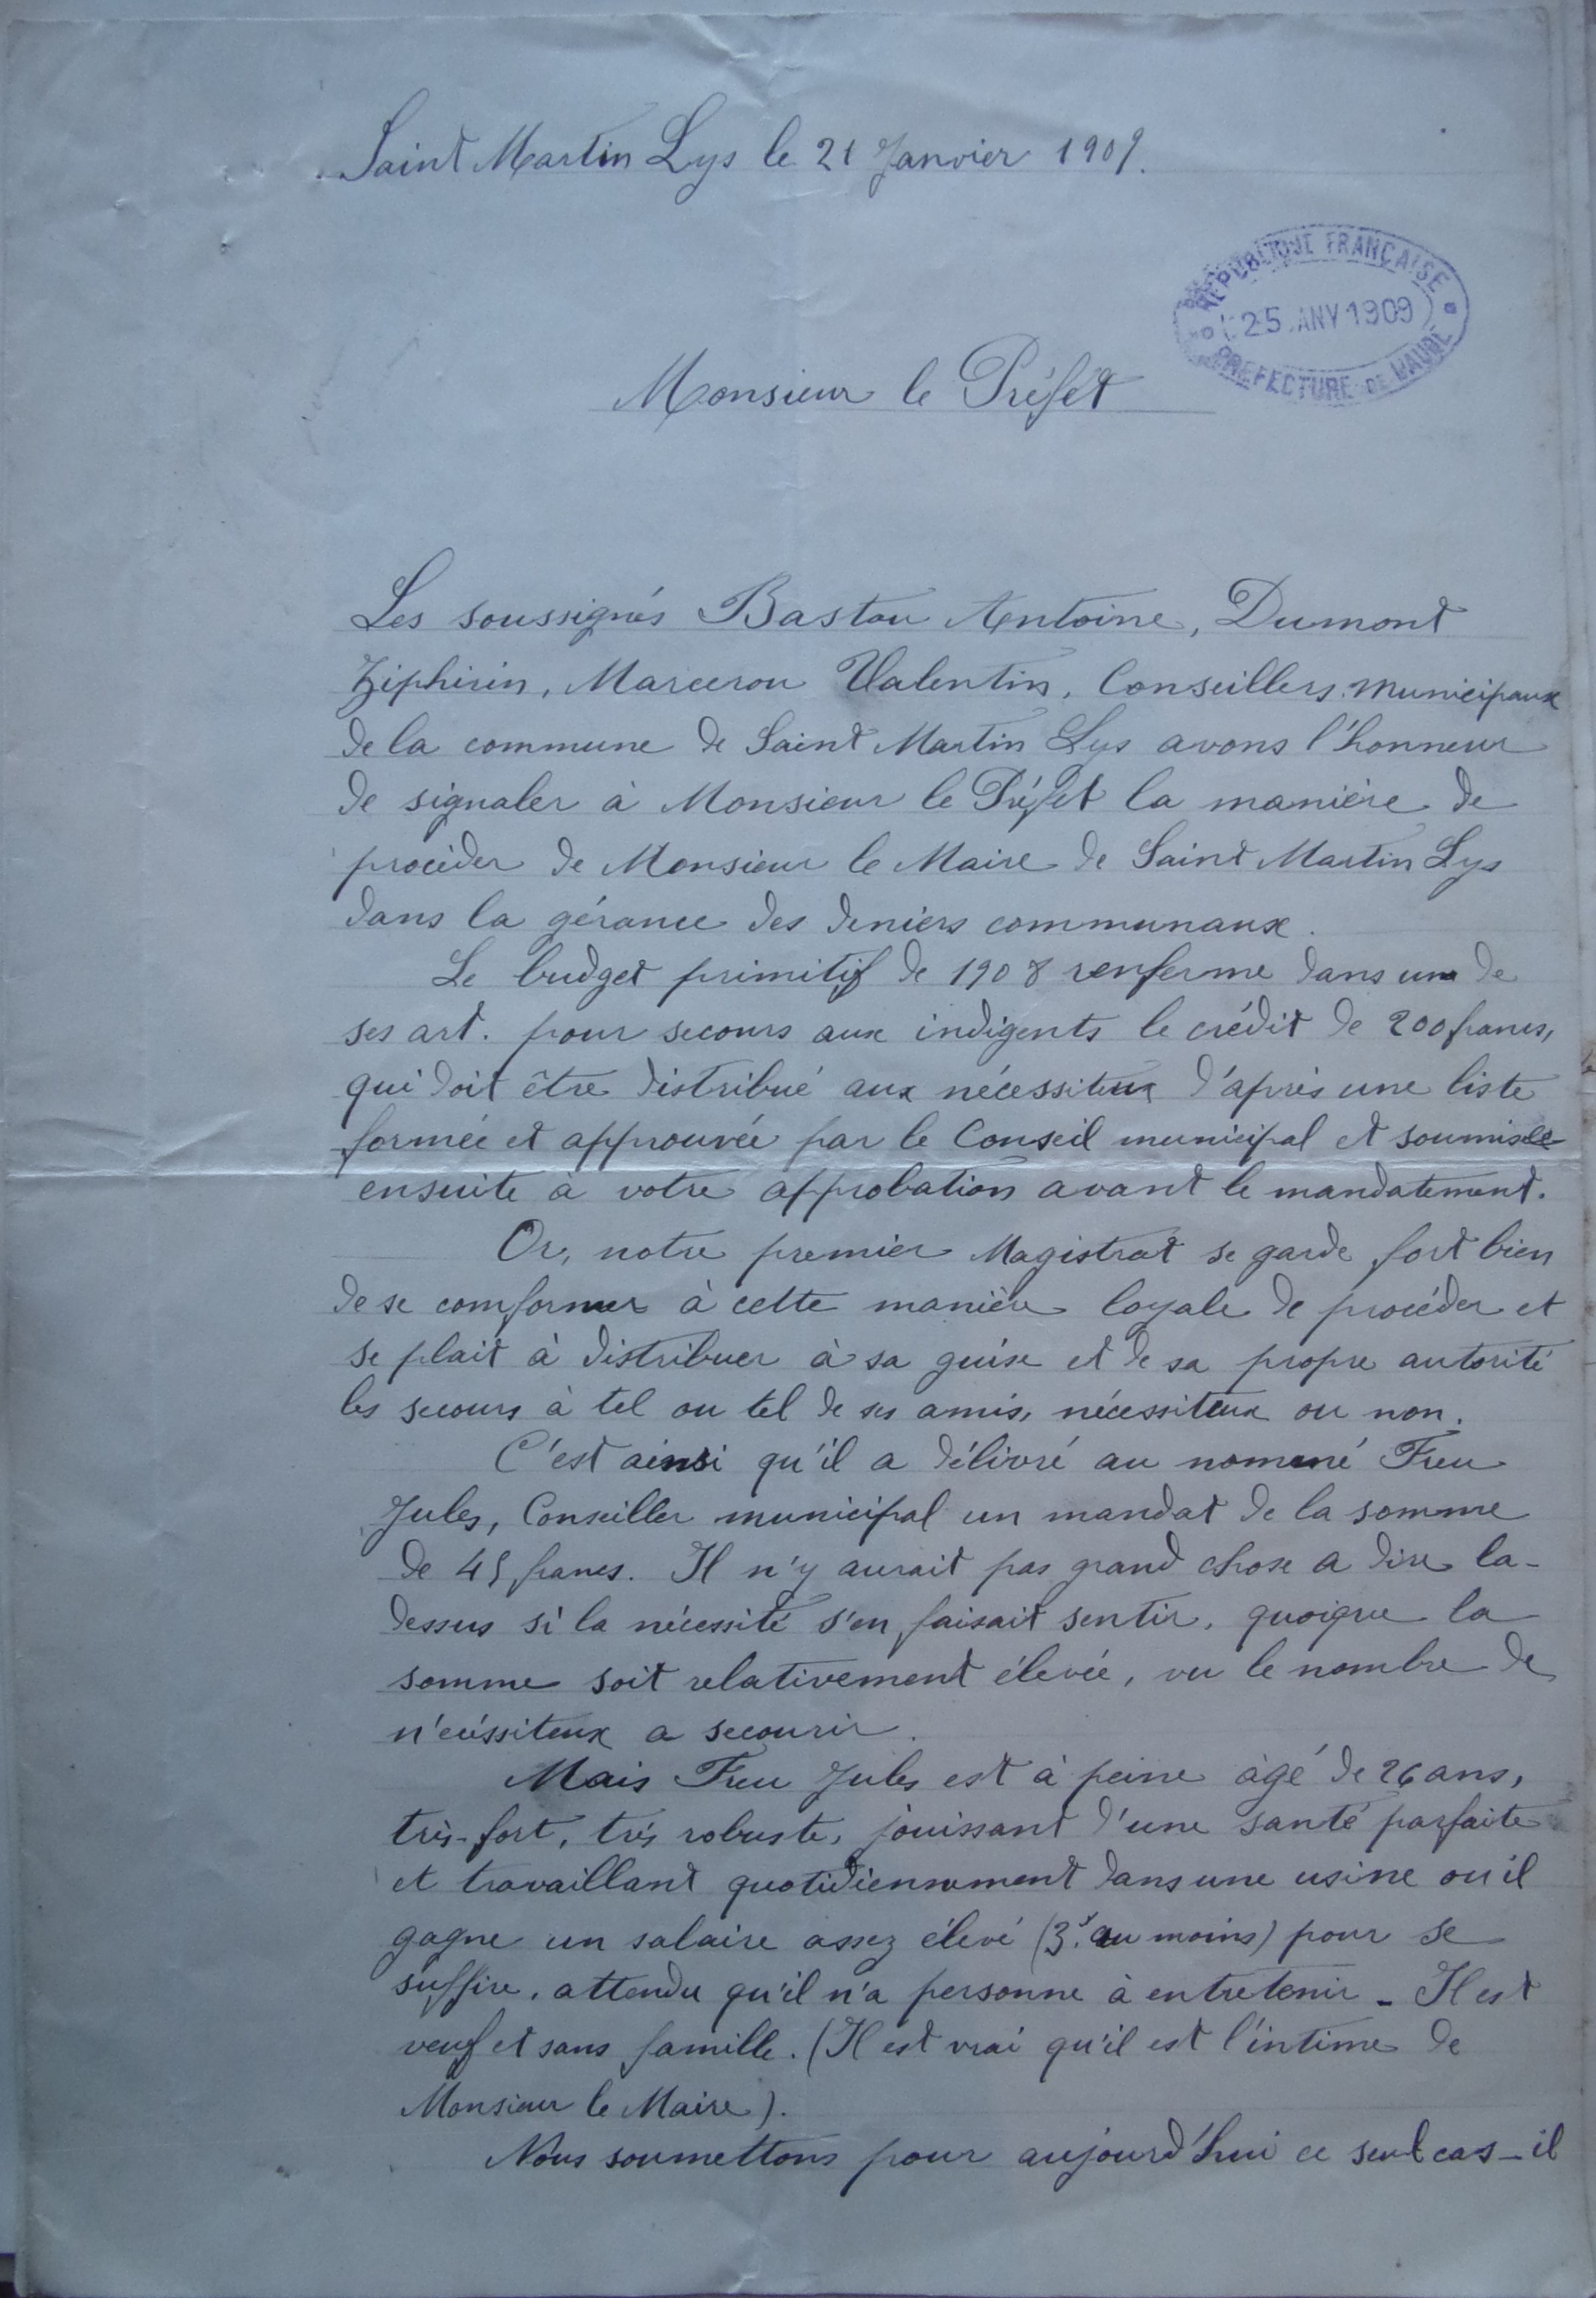 Saint Martin Lys le 21 Janvier 1909.
REPUBLIQUE FRANÇAISE
25 JANV 1909
PREFECTURE DE L'AUDE
Monsieur le Préfet
Les soussignés Bastou Antoine, Dumont
Ziphirin, Marceron Valentin, Conseillers municipaux
de la commune de Saint Martin Lys avons l'honneur
de signaler à Monsieur le Préfet la manière de
procéder de Monsieur le Maire de Saint Martin Lys
dans la gérance des deniers communaux.
Le budget primitif de 1908 renferme dans un de
ses art. pour secours aux indigents le crédit de 200 francs,
qui doit être distribué aux nécessiteux d'après une liste
formée et approuvée par le Conseil municipal et soumise
ensuite à votre approbation avant le mandatement.
Or, notre premier Magistrat se garde fort bien
de se comformer à cette manière loyale de procéder et
se plait à distribuer à sa guise et de sa propre autorité
les secours à tel ou tel de ses amis, nécessiteux ou non.
C'est ainsi qu'il a délivré au nommé Freu
Jules, Conseiller municipal un mandat de la somme
de 45 francs. Il n'y aurait pas grand chose a dire la-
dessus si la nécessité s'en faisait sentir, quoique la
somme soit relativement élevée, vu le nombre de
n'écéssiteux a secourir.
Mais Freu Jules est à peine âgé de 26 ans,
très-fort, très robuste, jouissant d'une santé parfaite
et travaillant quotidiennement dans une usine ou il
gagne un salaire assez élevé (3f. au moins) pour se
suffire, attendu qu'il n'a personne à entretenir - Il est
veuf et sans famille. (Il est vrai qu'il est l'intime de
Monsieur le Maire).
Nous soumettons pour aujourd'hui ce seul cas - il